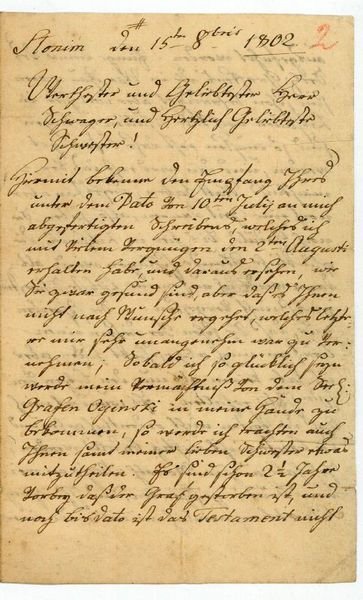 Slonim den 15ten 8bris 1802.
2
Werthester und Geliebtester Herr
Schwager, und Hertzlich Geliebteste
Schwester!
Hiermit bekenne den Empfang Ihres
unter dem Dato von 10ten Julij an mich
abgefertigten Schreibens, welches ich
mit Vielem Vergnügen den 2ten Augusti
erhalten habe, und daraus ersehen, wie
Sie zwar gesund sind, aber daß es Ihnen
nicht nach Wunsche ergehet, welches letzte-
re mir sehr unangenehm war zu ver-
nehmen, Sobald ich so glücklich seyn
werde mein Vermächtniß von dem Seel:
Grafen Oginski in meine Hände zu
bekommen, so werde ich trachten auch
Ihnen samt meiner lieben Schwester etwas
mitzutheilen. Es sind schon 2½ Jahre
vorbey daß der Graf gestorben ist, und
noch bis dato ist das Testament nicht